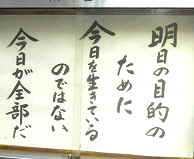 明日の目的の
ために
今日を生きている
のではない
今日が全部だ